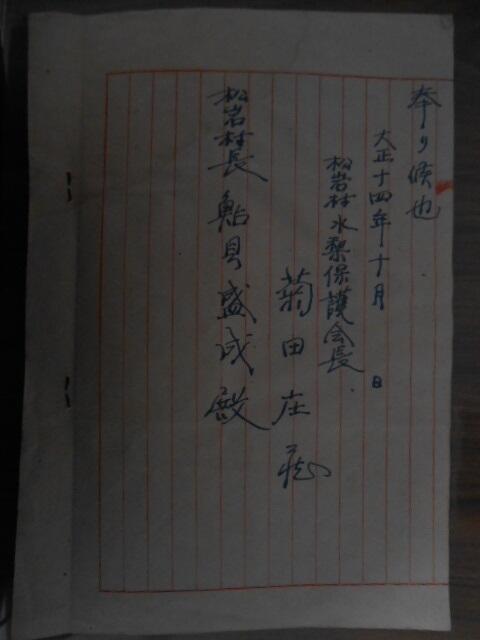 奉リ候也
大正十四年十月 日
松岩村水梨保護会長
菊田庄蔵
松岩村長 鮎貝盛成殿